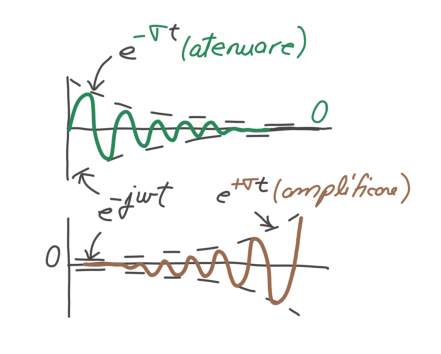 e^-σt (atenuare)
0
e^-jwt e^+σt (amplificare)
0